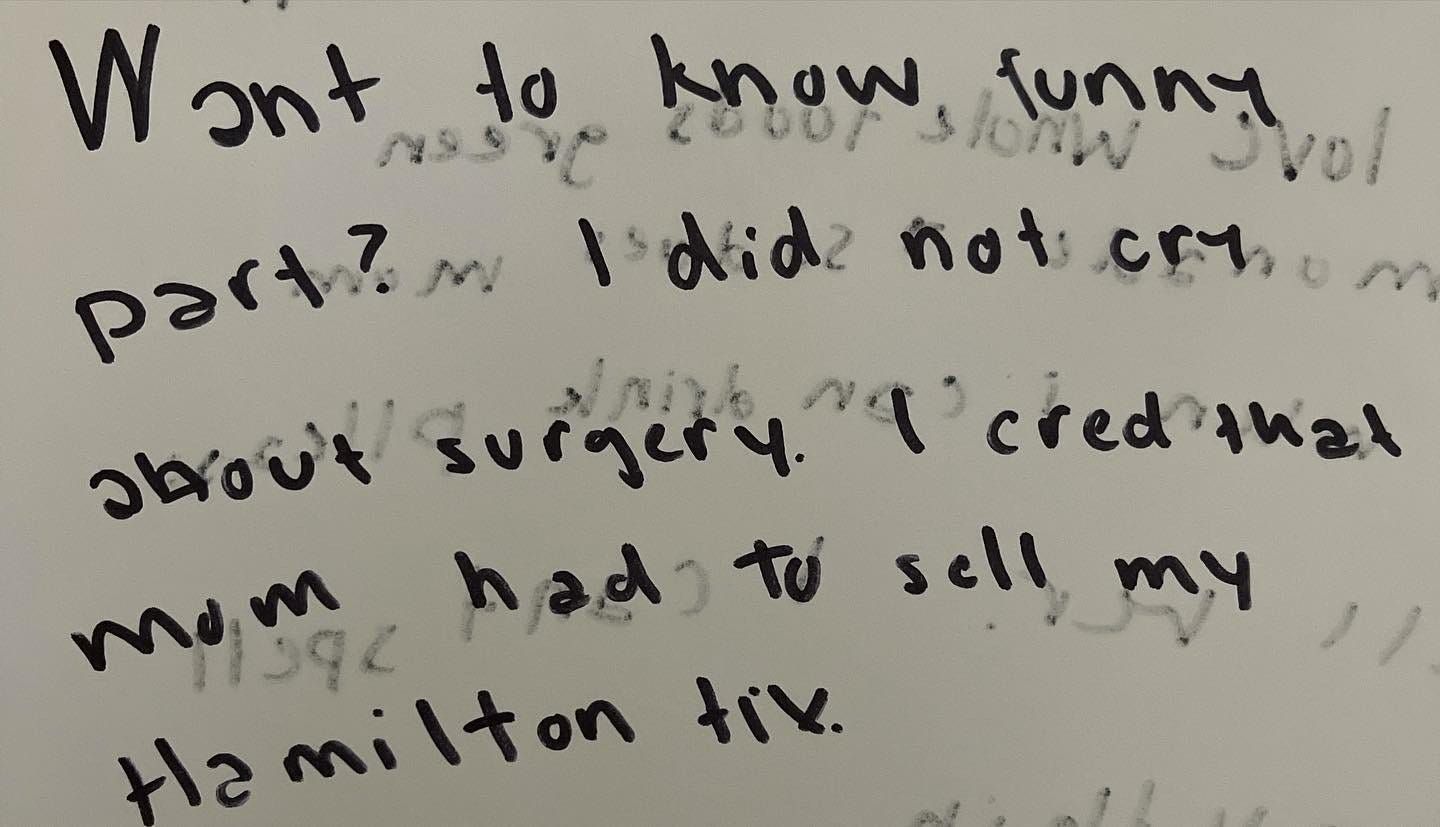 Want to know funny
part? I did not cry
about surgery. I cred that
mom had to sell my
Hamilton tix.